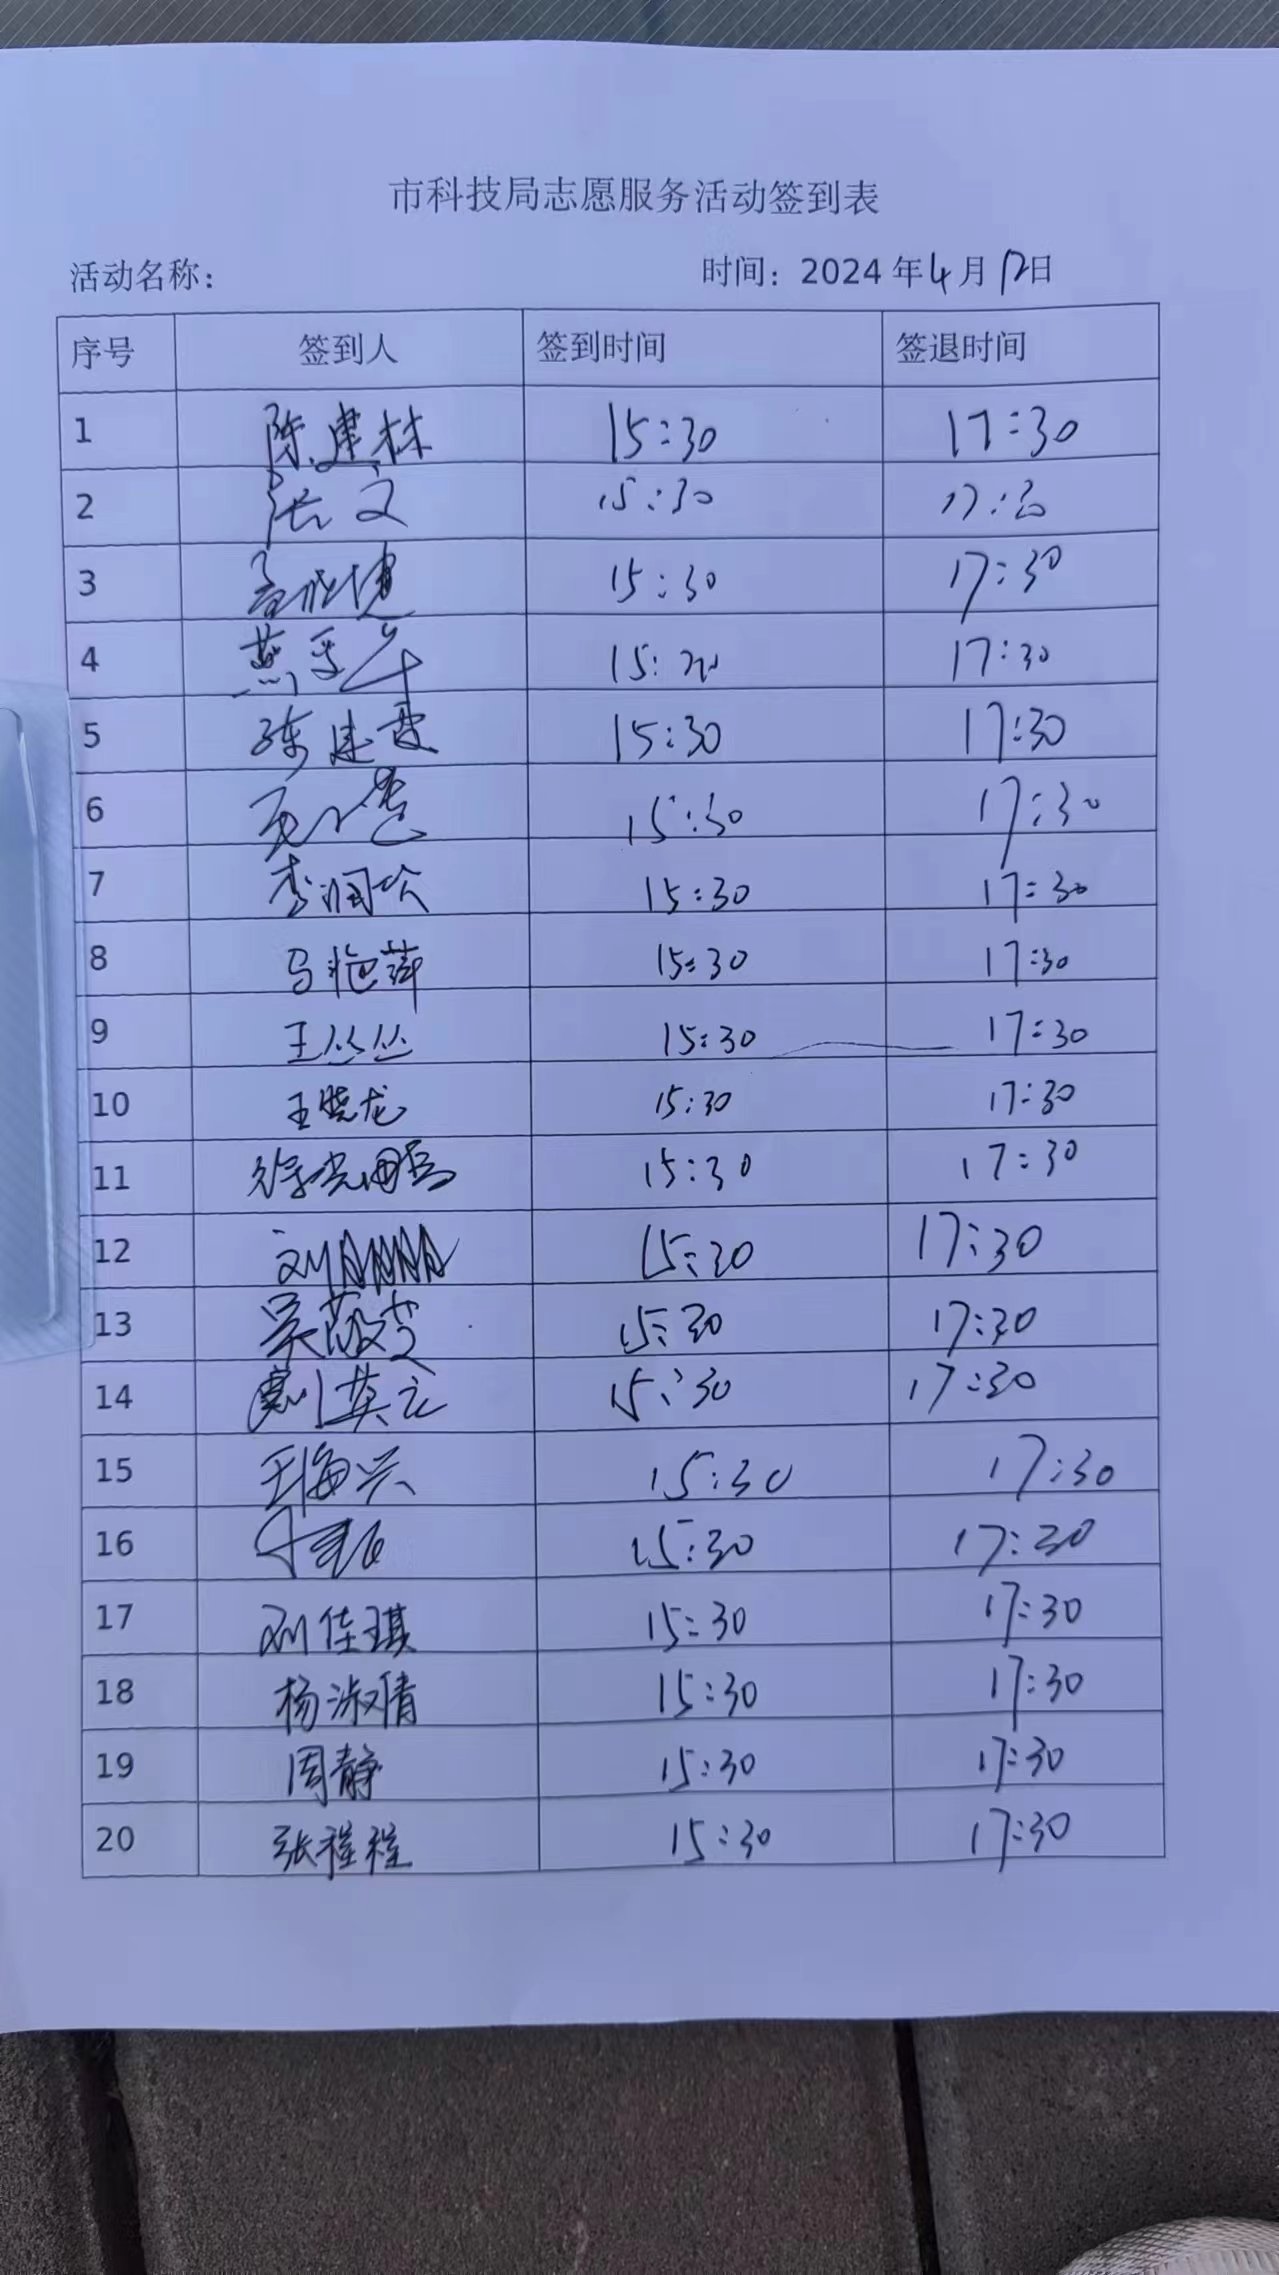 市科技局志愿服务活动签到表
活动名称： 时间：2024年4月12日
序号 签到人 签到时间 签退时间
1 陈建林 15:30 17:30
2 张文 15:30 17:30
3 15:30 17:30
4 燕 15:30 17:30
5 陈建霞 15:30 17:30
6 15:30 17:30
7 李润 15:30 17:30
8 马艳萍 15:30 17:30
9 王丛丛 15:30 17:30
10 王晓龙 15:30 17:30
11 徐 15:30 17:30
12 刘 15:30 17:30
13 吴 15:30 17:30
14 15:30 17:30
15 王海兴 15:30 17:30
16 15:30 17:30
17 刘佳琪 15:30 17:30
18 杨淑倩 15:30 17:30
19 周静 15:30 17:30
20 张程程 15:30 17:30